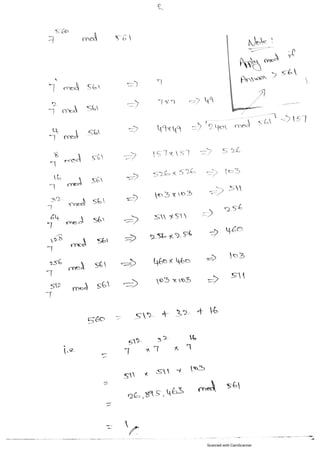 2
7^560 mod 561
Note:
Apply mod if
Answer > 561
7^1 mod 561 => 7
7^2 mod 561 => 7×7 => 49
7^4 mod 561 => 49×49 => "2401 mod 561" => 157
7^8 mod 561 => 157×157 => 526
7^16 mod 561 => 526×526 => 103
7^32 mod 561 => 103×103 => 511
7^64 mod 561 => 511×511 => 256
7^128 mod 561 => 256×256 => 460
7^256 mod 561 => 460×460 => 103
7^512 mod 561 => 103×103 => 511
560 = 512 + 32 + 16
i.e = 7^512 × 7^32 × 7^16
= 511 × 511 × 103
= 26,895,463 mod 561
= 1
Scanned with CamScanner